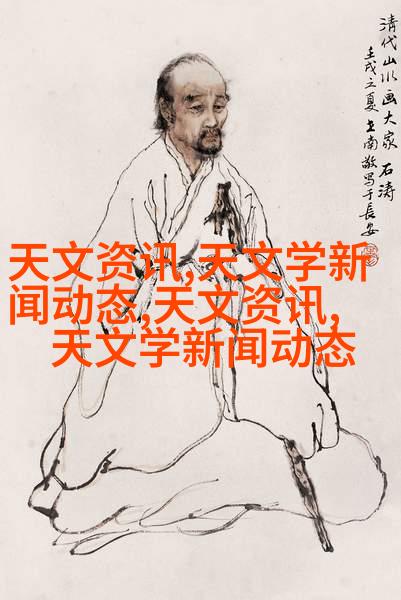 清代山水画大家 石涛
壬戌之夏 王南敬写于长安
天文资讯,天文学新
闻动态,天文资讯,
天文学新闻动态